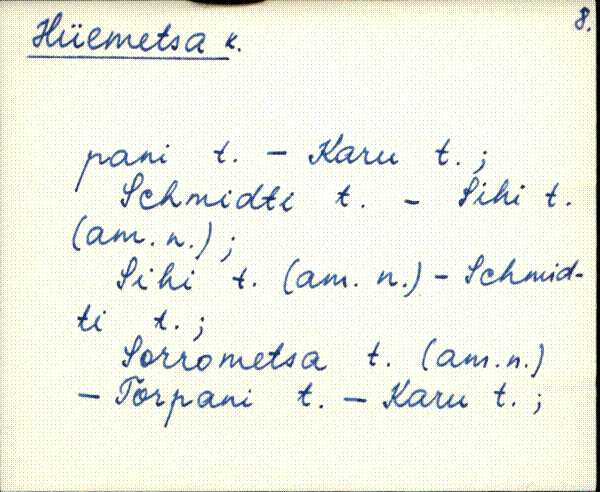 8.
Hüemetsa k.
pani t. – Karu t.;
Schmidti t. – Sihi t.
(am. n.);
Sihi t. (am. n.) – Schmid-
ti t.;
Sorrometsa t. (am. n.)
– Tõrpani t. – Karu t.;